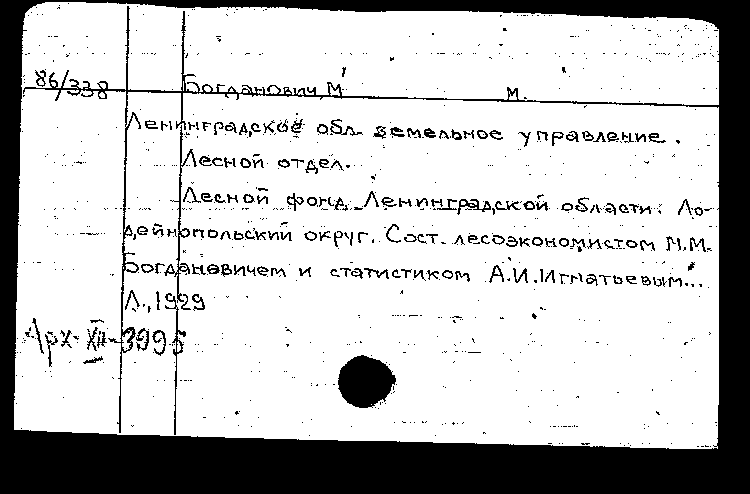 86/338 Богданович, М М.
Ленинградское обл. земельное управление.
Лесной отдел.
Лесной фонд Ленинградской области: Ло-
дейнопольский округ. Сост. лесоэкономистом М.М.
Богдановичем и статистиком А.И.Игнатьевым...
Л., 1929
Арх. XIII-3995